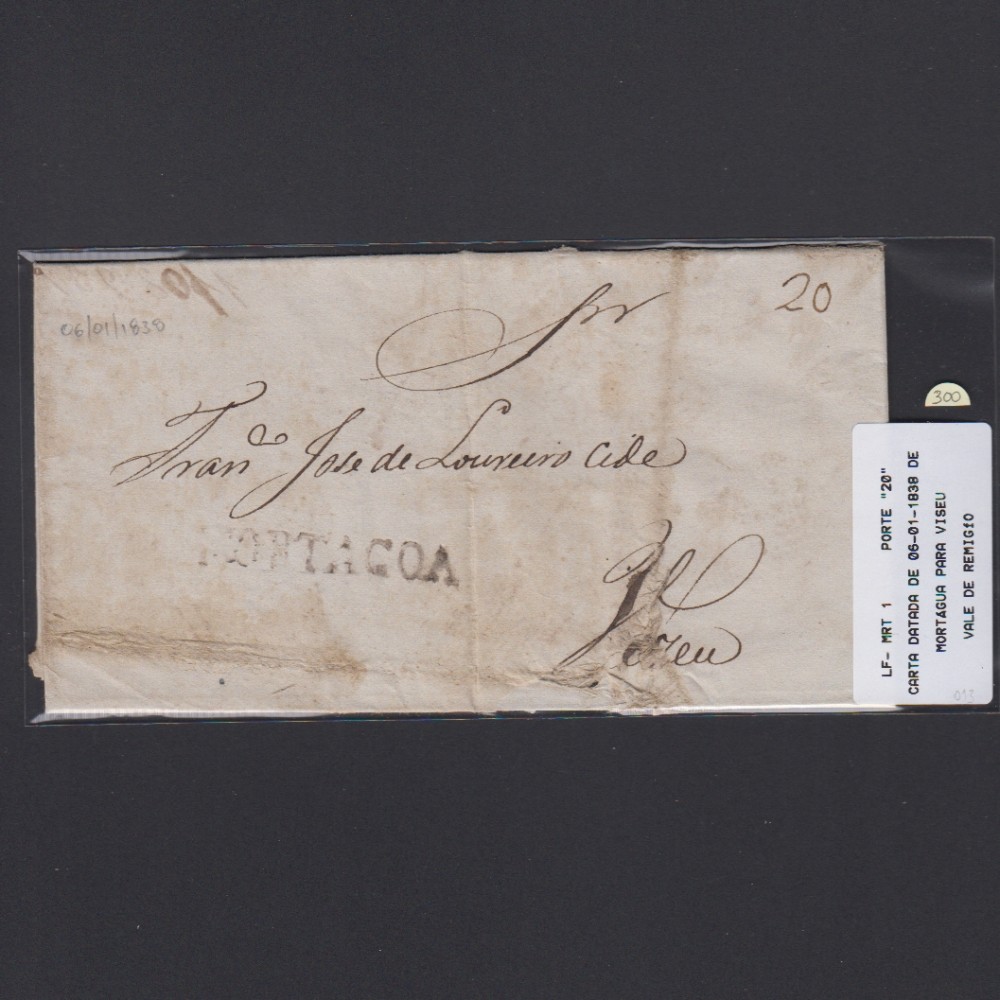 20
06/01/1838
Snr
Fran.co Jose de Loureiro Cide
MORTAGOA
Vizeu
300
LF- MRT 1 PORTE "20"
CARTA DATADA DE 06-01-1838 DE
MORTÁGUA PARA VISEU
VALE DE REMIGIO